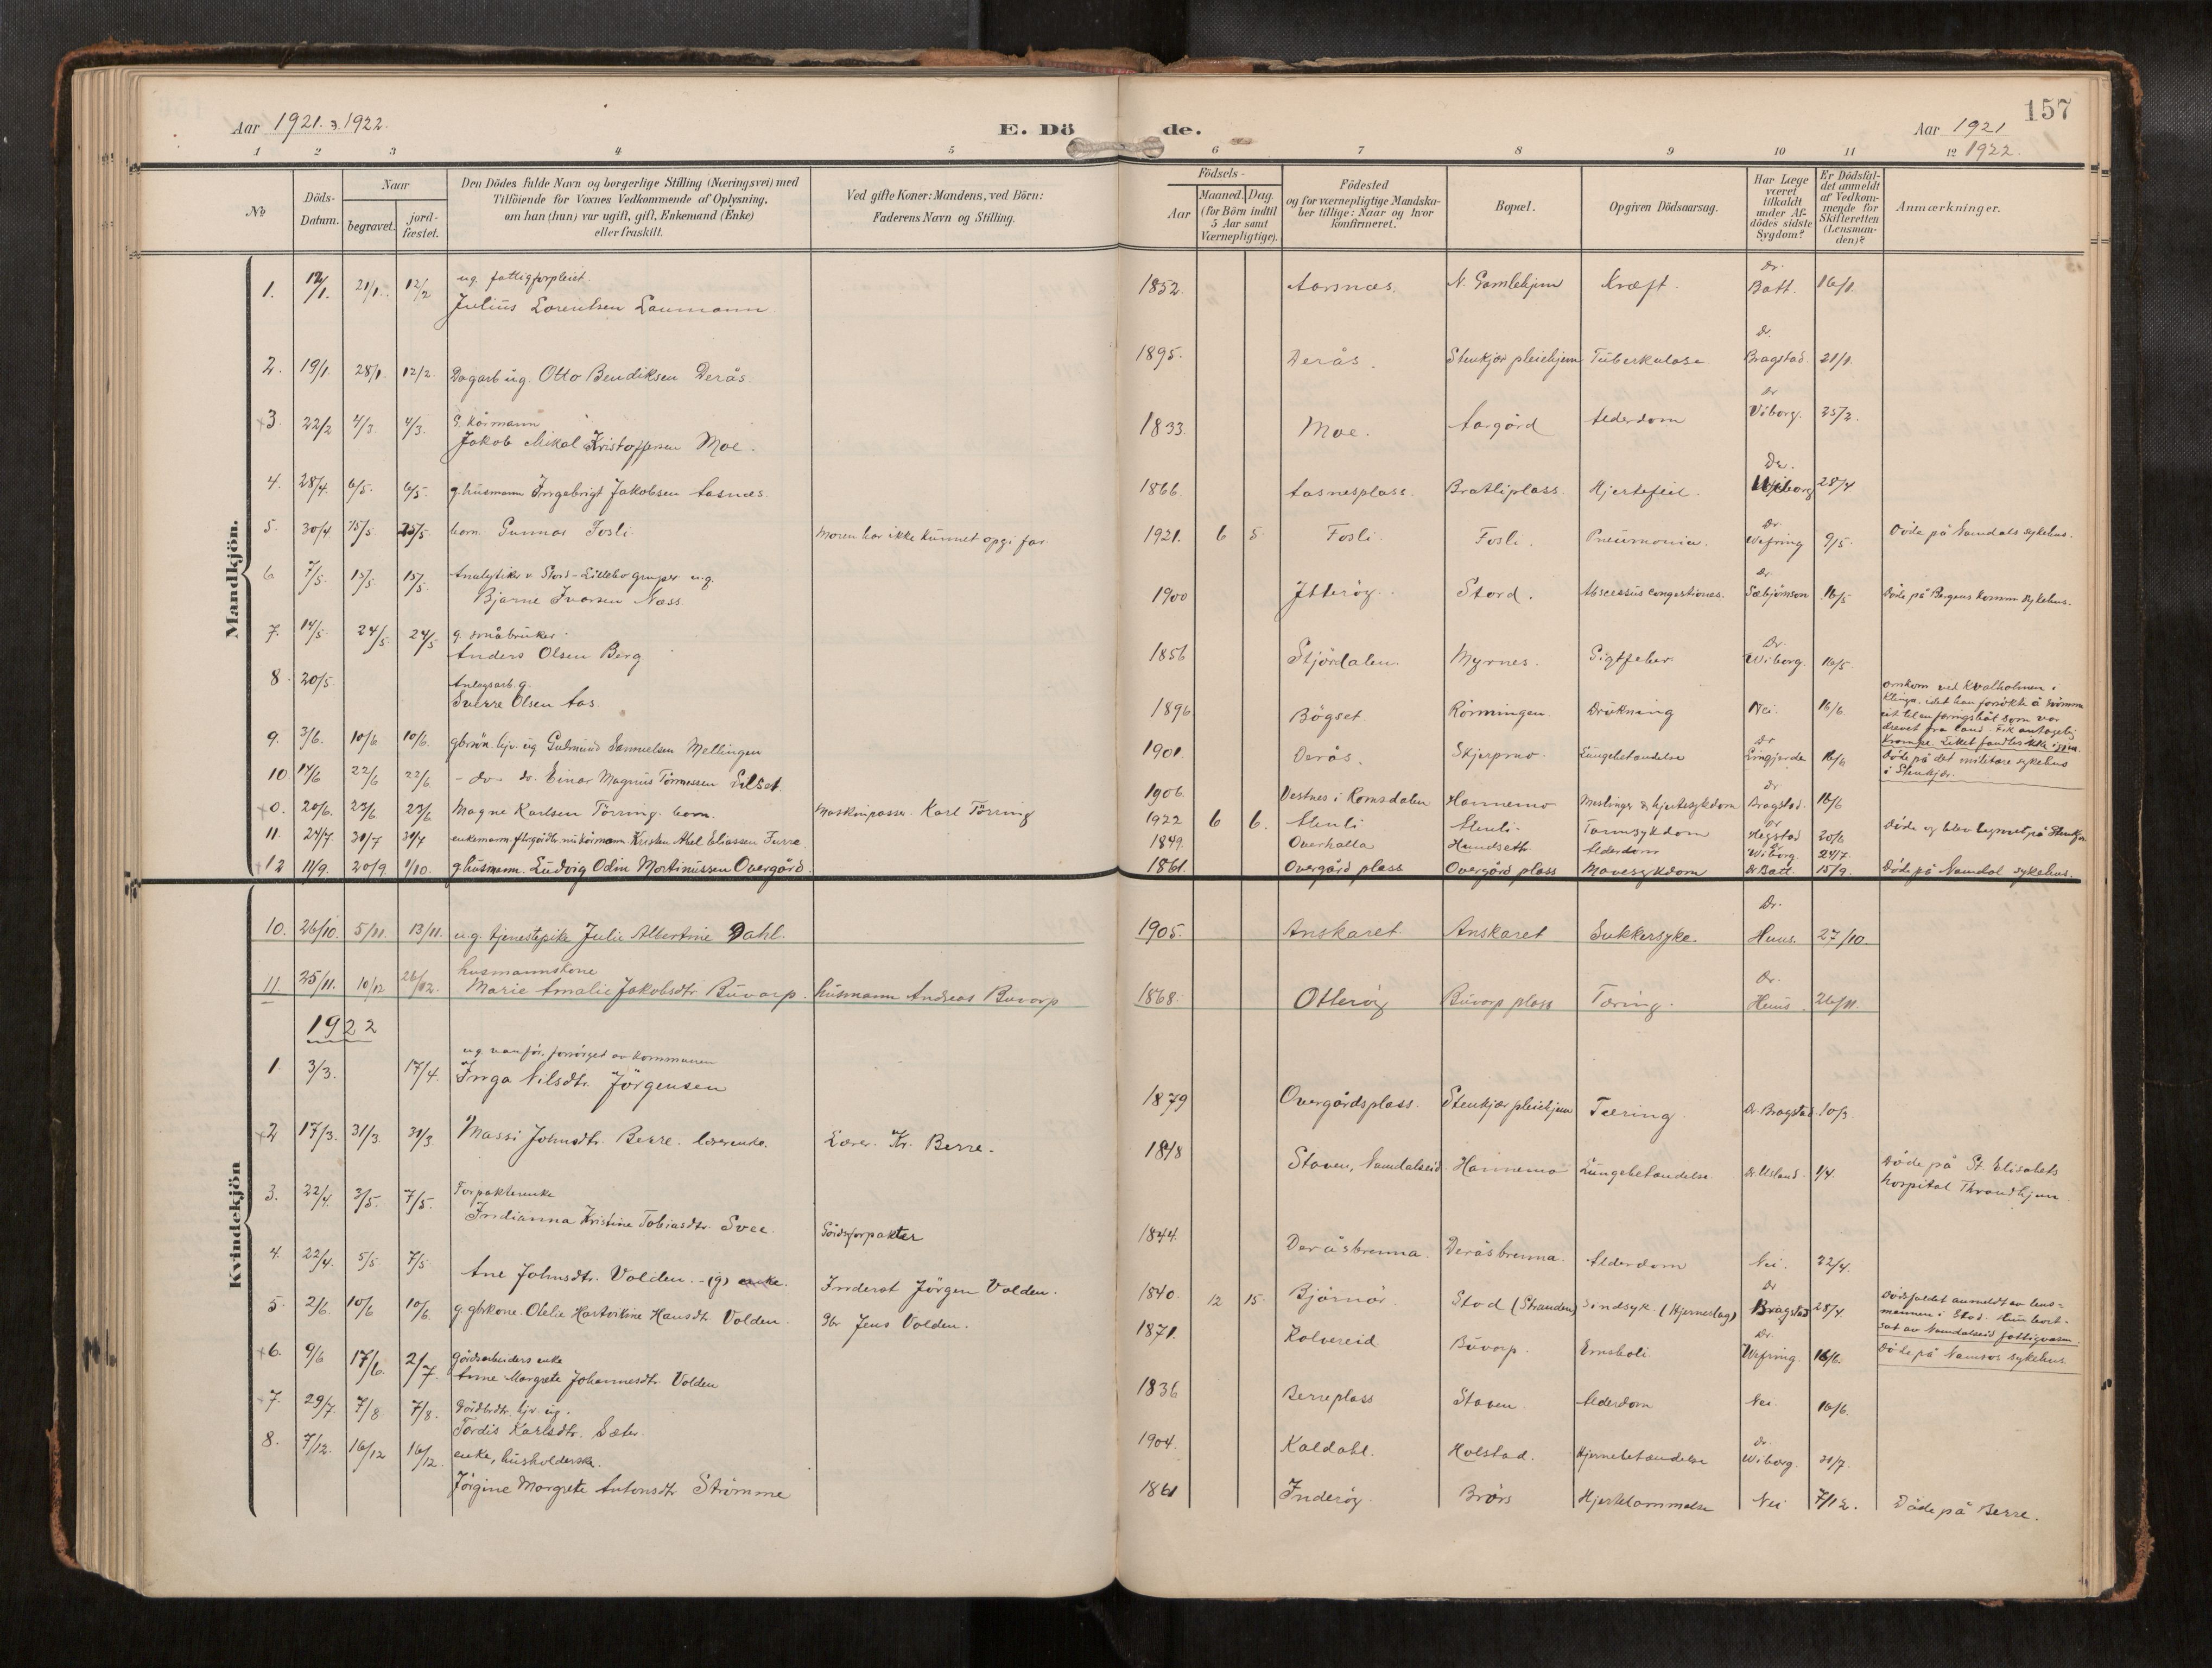 157
Aar 1921 3 1922.
E. Dö de.
Aar 1921
1922.
1 2 3 4 5 6 7 8 9 10 11 12
No
Döds-
Datum.
Naar
begravet.
jord-
fæstet.
Den Dödes fulde Navn og borgerlige Stilling (Næringsvei) med
Tilföiende for Voxnes Vedkommende af Oplysning,
om han (hun) var ugift, gift, Enkemand (Enke)
eller fraskilt.
Ved gifte Koner: Mandens, ved Börn:
Faderens Navn og Stilling.
Födsels-
Aar
Maaned. Dag.
(for Börn indtil
5 Aar samt
Værnepligtige).
Födested
og for værnepligtige Mandska-
ber tillige: Naar og hvor
konfirmeret.
Bopæl.
Opgiven Dödsaarsag.
Har Læge
været
tilkaldt
under Af-
dödes sidste
Sygdom?
Er Dödsfal-
det anmeldt
af Vedkom-
mende for
Skifteretten
(Lensman-
den)?
Anmærkninger.
Mandkjön.
1. 12/1. 21/1. 12/2 ug. fattigforpleiet.
Julius Lorentsen Laumann 1852. Aarsnæs. N. Gamlehjem Kræft. Dr. Batt. 16/1.
2. 19/1. 28/1. 12/2. Dagarb. ug. Otto Bendiksen Derås. 1895. Derås. Stenkjær pleiehjem Tuberkulose Dr. Bragstad. 21/1.
3. 22/2 4/3. 4/3. G. kårmann
Jakob Mikal Kristoffersen Moe. 1833. Moe. Aargård Alderdom Dr. Viborg. 25/2.
4. 28/4. 6/5. 6/5. g. husmann Ingebrigt Jakobsen Aasnes. 1866. Aasnesplass. Bratliplass. Hjertefeil. Dr. Wiborg 28/4
5. 30/4. 15/5. 15/5. barn. Gunnar Fosli. Moren har ikke kunnet opgi far. 1921. 6 5. Fosli. Fosli. Pneumonia. Dr. Wefring 9/5. Døde på Namdals sykehus.
6 7/5. 15/5. 15/5. Analytiker v. Stord-Lillebo gruper u.g.
Bjarne Ivarsen Næss. 1900 Ytterøy. Stord. Abscessus congestiones. Dr. Sæbjörnson 16/5 Døde på Bergens komm. sykehus.
7. 14/5. 24/5. 24/5 g. småbruker.
Anders Olsen Berg 1856 Stjördalen. Myrnes. Gigtfeber. Dr. Wiborg. 16/5.
8. 20/5. Anlegsarb. g.
Sverre Olsen Aas. 1896 Bögset. Römmingen Drukning Nei. 16/6. omkom ved Kvalholmen i
Klinga, idet han forsökte å svömme
ut til en færingsbåt som var
drevet fra land. Fik antagelig
Krampe. Liket fandtes ikke igjen.
9. 3/6. 10/6 10/6. gbrsön. hjv. ug. Gudmund Samuelsen Mellingen 1901. Derås. Skjerpmo. Lungebetændelse Dr Lingjerde 16/6 Døde på det militære sykehus
i Stenkjær.
10 14/6 22/6 22/6. - do - do. Einar Magnus Tommessen Selset. 1906. Vestnes i Romsdalen Hannemo Meslinger & hjertesykdom Dr Bragstad. 16/6
0. 20/6. 23/6 23/6 Magne Karlsen Törring. barn. Maskinpasser. Karl Törring 1922 6 6. Alenli Alenli. Tarmsykdom Dr Hegstad 20/6 Døde og blev begravet på Stenkjær
11. 24/7. 31/7 31/7 1849. Overhalla Hundseth Alderdom Dr Wiborg. 24/7.
12 11/9. 20/9 1/10. g. husmann. Ludvig Odin Martinussen Overgård. 1861. Overgård plass Overgård plass Mavesykdom Dr Batt. 15/9. Døde på Namdal sykehus.
Kvindekjön
10. 26/10. 5/11. 13/11. u.g. tjenestepike Julie Albertine Dahl. 1905. Anskaret. Anskaret Sukkersyke. Dr. Huus. 27/10.
11. 25/11. 10/12 26/12. husmannskone
Marie Amalie Jakobsdtr. Buvarp. husmann Andreas Buvarp 1868. Otteröy Buvarp plass Tæring. Dr. Huus 26/11.
1922
1. 3/3. 17/4. ug. vanför, forsörget av kommunen
Inga Nilsdtr. Jörgensen 1879 Overgårdsplass. Stenkjær pleiehjem Tæring. Dr. Bragstad 10/3.
2 17/3. 31/3. 31/3 Massi Johnsdtr. Berre. lærerenke. Lærer. Kr. Berre. 1848 Staven, Namdalseid. Hannemo Lungebetændelse Dr. Usland. 1/4. Døde på St. Elisabets
hospital Throndhjem.
3. 22/4. 3/5. 7/5. Forpakterenke
Indianna Kristine Tobiasdtr. Svee. Gårdsforpakter 1844. Deråsbrenna. Deråsbrenna. Alderdom Nei. 22/4.
4. 22/4. 5/5. 7/5. Ane Johnsdtr. Volden. - (g) enke. Inderst Jörgen Volden. 1840. 12 15. Björnör Stod (Stranden) Sindsyk. (Hjerneslag) Dr Bragstad 28/4 Dödsfaldet anmeldt av lens-
mannen i Stod. Hun bort-
sat av Namdalseid fattigvæsen.
5. 2/6. 10/6 10/6. g. gbrkone. Otelie Hartvikine Hansdtr. Volden. Gbr Jens Volden. 1871. Kolvereid Buvarp. Emboli. Dr. Wefring. 16/6. Døde på Namsos sykehus.
6. 9/6 17/6. 2/7. Gårdsarbeiders enke
Anne Margrete Johannesdtr. Volden 1836 Berreplass Staven. Alderdom Nei. 16/6.
7. 29/7. 7/8 7/8. Gårdbrdtr. hjv. ug.
Tordis Karlsdtr. Sæter. 1904. Kaldahl. Holstad. Hjernebetændelse Dr. Wiborg. 31/7.
8. 7/12. 16/12 16/12. enke, husholderske.
Jörgine Margrete Antonsdtr Strömme 1861 Inderöy. Brörs Hjertelammelse Nei 7/12. Døde på Berre.